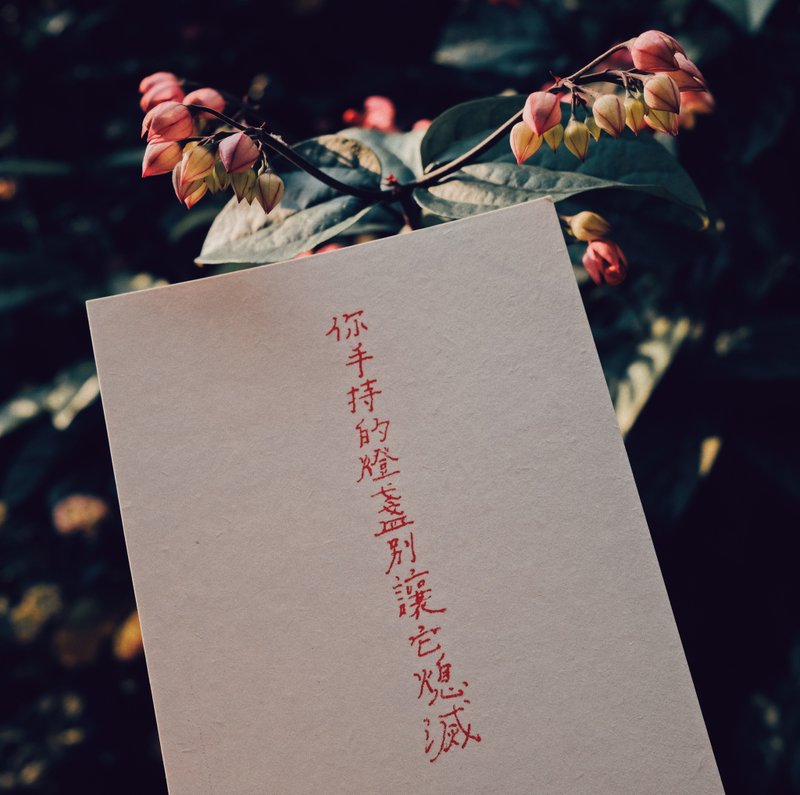 你手持的燈盞別讓它熄滅